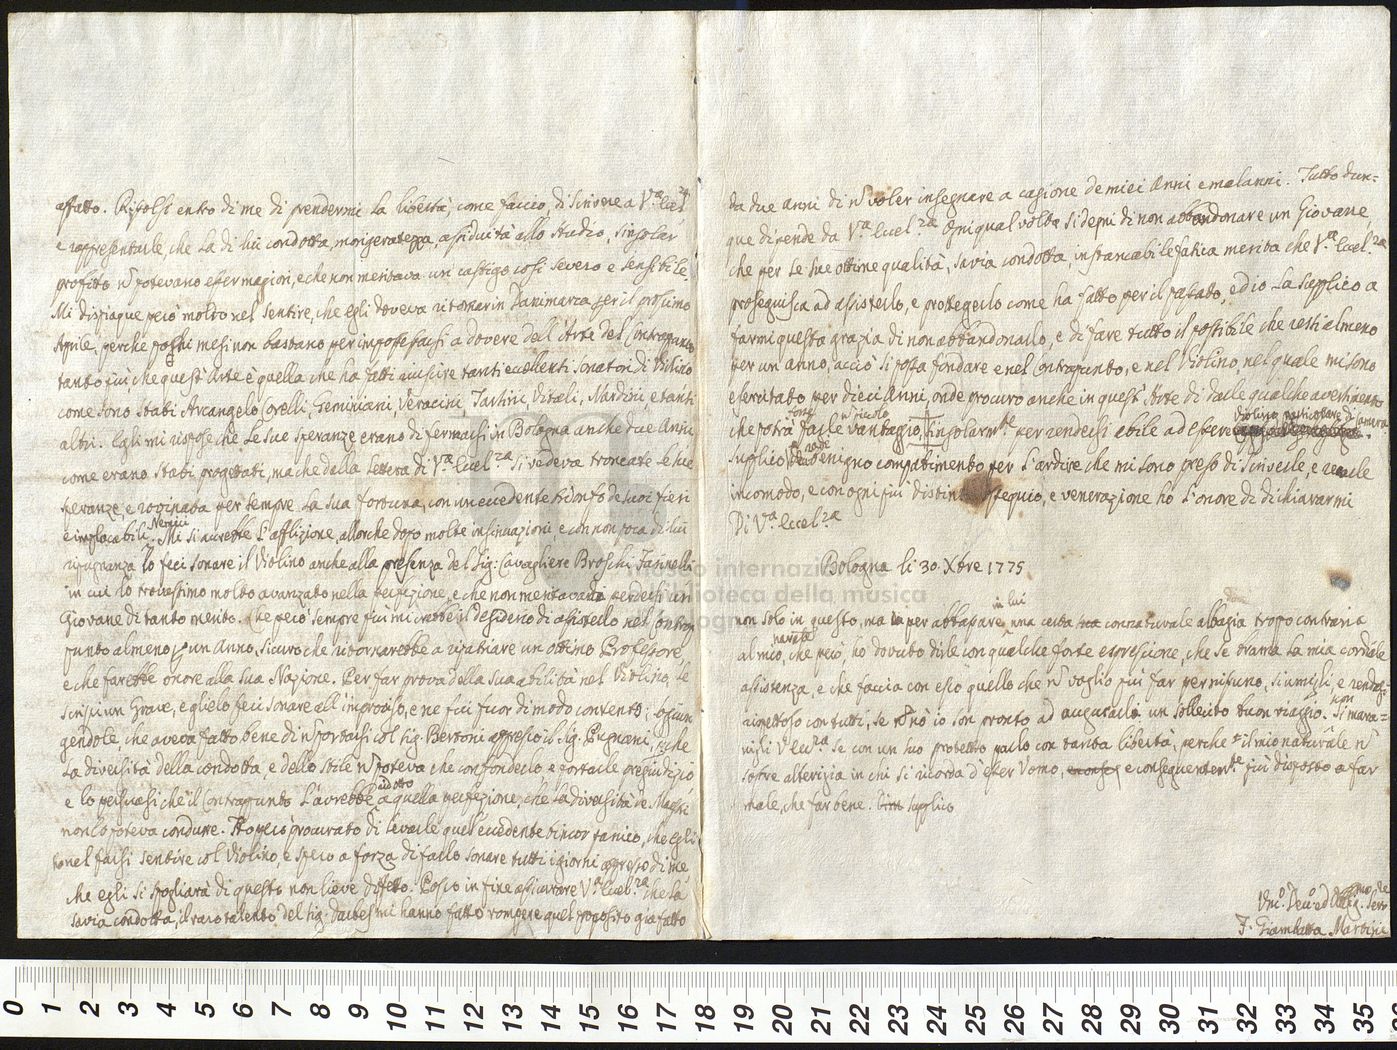 affatto. Risolsi entro di me di prendermi la libertà, come faccio, di scrivere a V.ra Eccel.za
e rappresentarle, che la di lui condotta, morigeratezza, assiduità allo studio, singolar
profitto ñ potevano esser magiori, e che non meritava un castigo così severo e sensibile.
Mi dispiaque però molto nel sentire, che egli doveva ritornar in Danimarca per il prossimo
Aprile, perche pochi mesi non bastano per impossessarsi a dovere dell'Arte del Contrapunto
tanto più, che quest'Arte è quella che ha fatti riuscire tanti eccellenti Sonatori di Violino
come sono stati Arcangelo Corelli, Geminiani, Veracini, Tartini, Vitali, Nardini, e tanti
altri. Egli mi rispose che le sue speranze erano di fermarsi in Bologna anche due Anni
come erano stati progettati, ma che dalla lettera di V.ra Eccel.za si vedeva troncate le sue
speranze, e rovinata per sempre la sua fortuna, con un eccedente trionfo de suoi fieri
e implacabili Nemici. Mi si accrebbe l'afflizione, allorche dopo molte insinuazioni, e con non poca di lui
ripugnanza lo feci sonare il Violino anche alla presenza del Sig: Cavagliere Broschi Farinelli
in cui lo trovassimo molto avanzato nella perfezione, e che non meritava di perdersi un
Giovane di tanto merito. Che però sempre più mi crebbe il desiderio di assisterlo nel Contra
punto almeno p un Anno, sicuro che ritornarebbe a ripatriare un ottimo Professore,
e che farebbe onore alla sua Nazione. Per far prova della sua abilità nel Violino, le
scrissi un Grave, e glielo feci sonare all'improviso, e ne fui fuor di modo contento; aggiun
gendole, che aveva fatto bene di ñ portarsi col Sig. Bertoni appresso il Sig. Pugnani, perche
la diversità della condotta, e dello stile ñ poteva che confonderlo, e portarle pregiudizio,
e lo persuasi che il Contrapunto l'avrebbe adotto a quella perfezione, che la diversità de Maestri
non lo poteva condurre. Ho però procurato di levarle quell'eccedente timor panico, che egli
nel farsi sentire col Violino, e spero a forza di farlo sonare tutti i giorni appresso di me
che egli si spogliarà di questo non lieve difetto. Posso in fine assicurare V.ra Eccel.za che la
savia condotta, il raro talento del Sig. Darbes mi hanno fatto rompere quel proposito già fatto
da due anni di ñ voler insegnare a cagione de miei Anni e malanni. Tutto dun-
que dipende da V.ra Eccel.za ogni qual volta si degni di non abbandonare un Giovane
che per le sue ottime qualità, savia condotta, instancabile fatica merita che V.ra Eccel.za
proseguisca ad assisterlo, e proteggerlo come ha fatto per il passato, ed io la supplico a
farmi questa grazia di non abbandonarlo, e di fare tutto il possibile che resti almeno
per un anno, acciò si possa fondare e nel Contrapunto, e nel Violino, nel quale mi sono
esercitato per dieci Anni, onde procuro anche in quest'Arte di darle qualche avertimento
che potrà forse farle ñ piccolo vantaggio, singolarm.te per rendersi abile ad essere Violino particolare di camera
supplico benigno compatimento per l'ardire che mi sono preso di scriverle, e recarle
incomodo, e con ogni più distinto ossequio, e venerazione ho l'onore di dichiararmi
Di V.ra Eccel.za
Bologna li 30. Xbre 1775
non solo in questo, ma in per abbassare in lui una certa sua connaturale albagia troppo contraria
al mio naturale, che però, ho dovuto dirle con qualche forte espressione, che se brama la mia cordiale
assistenza, e che faccia con esso quello che ñ voglio più far per nissuno, si umilj, e rendasi
rispettoso con tutti, se nò io son pronto ad augurarle un sollecito buon viaggio. non Si mara-
viglj V. Ecc.za se con un suo protetto parlo con tanta libertà, perche il mio naturale ñ
soffre alterigia in chi si ricorda d'esser Uomo, e conseguentem.te più disposto a far
male, che far bene. supplico
Um.o Dev.o ed Obblig.mo Ser.e
F. Giambatta Martini
0 1 2 3 4 5 6 7 8 9 10 11 12 13 14 15 16 17 18 19 20 21 22 23 24 25 26 27 28 29 30 31 32 33 34 35
Museo internazionale
e biblioteca della musica
di Bologna